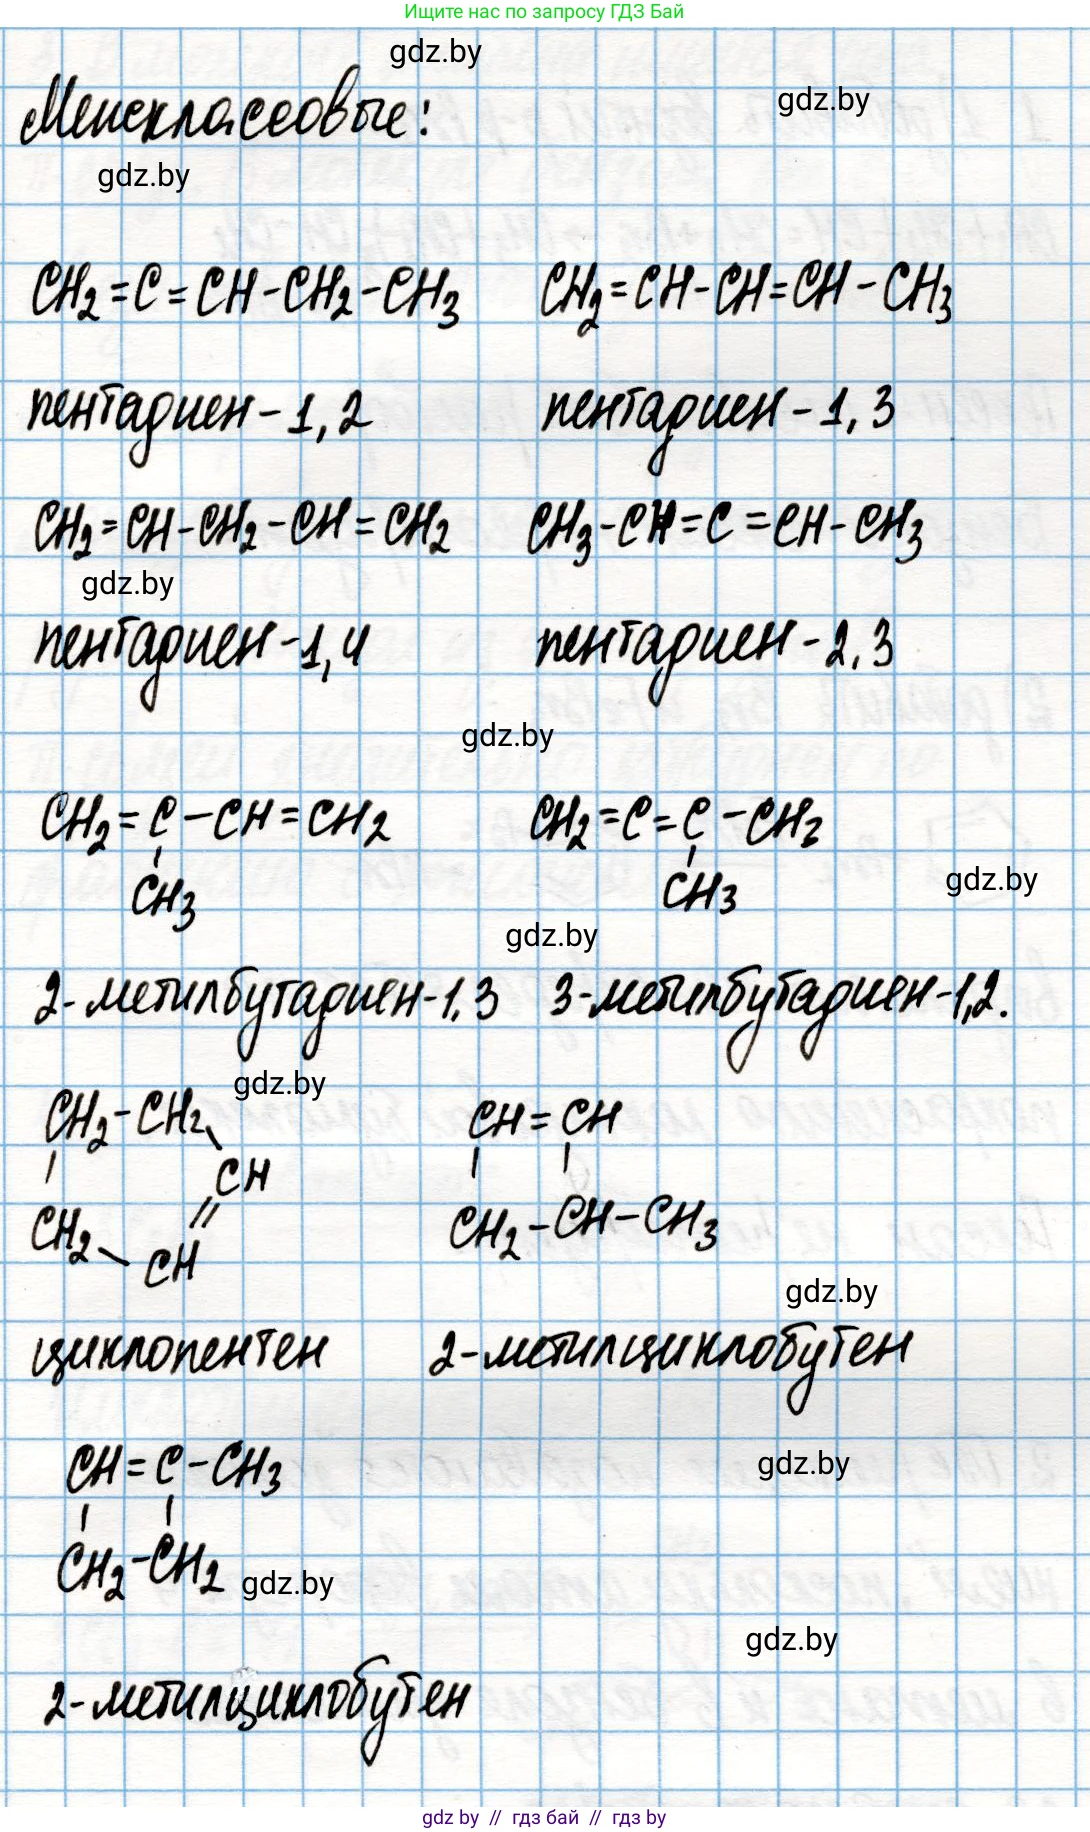 Ищите нас по запросу ГДЗ Бай
gdz.by
Межклассовые:
gdz.by
gdz.by
CH2=C=CH-CH2-CH3 CH2=CH-CH=CH-CH3
пентадиен-1,2 пентадиен-1,3
CH2=CH-CH2-CH=CH2 CH3-CH=C=CH-CH3
gdz.by
пентадиен-1,4 пентадиен-2,3
gdz.by
CH2=C-CH=CH2 CH2=C=C-CH2
CH3 CH3
gdz.by
gdz.by
2-метилбутадиен-1,3 3-метилбутадиен-1,2.
gdz.by
CH2-CH2 CH=CH
CH
CH2 CH2-CH-CH3
CH
gdz.by
циклопентен 2-метилциклобутен
CH=C-CH3
gdz.by
CH2-CH2
gdz.by
gdz.by
2-метилциклобутен
gdz by // гдз бай // гдз by